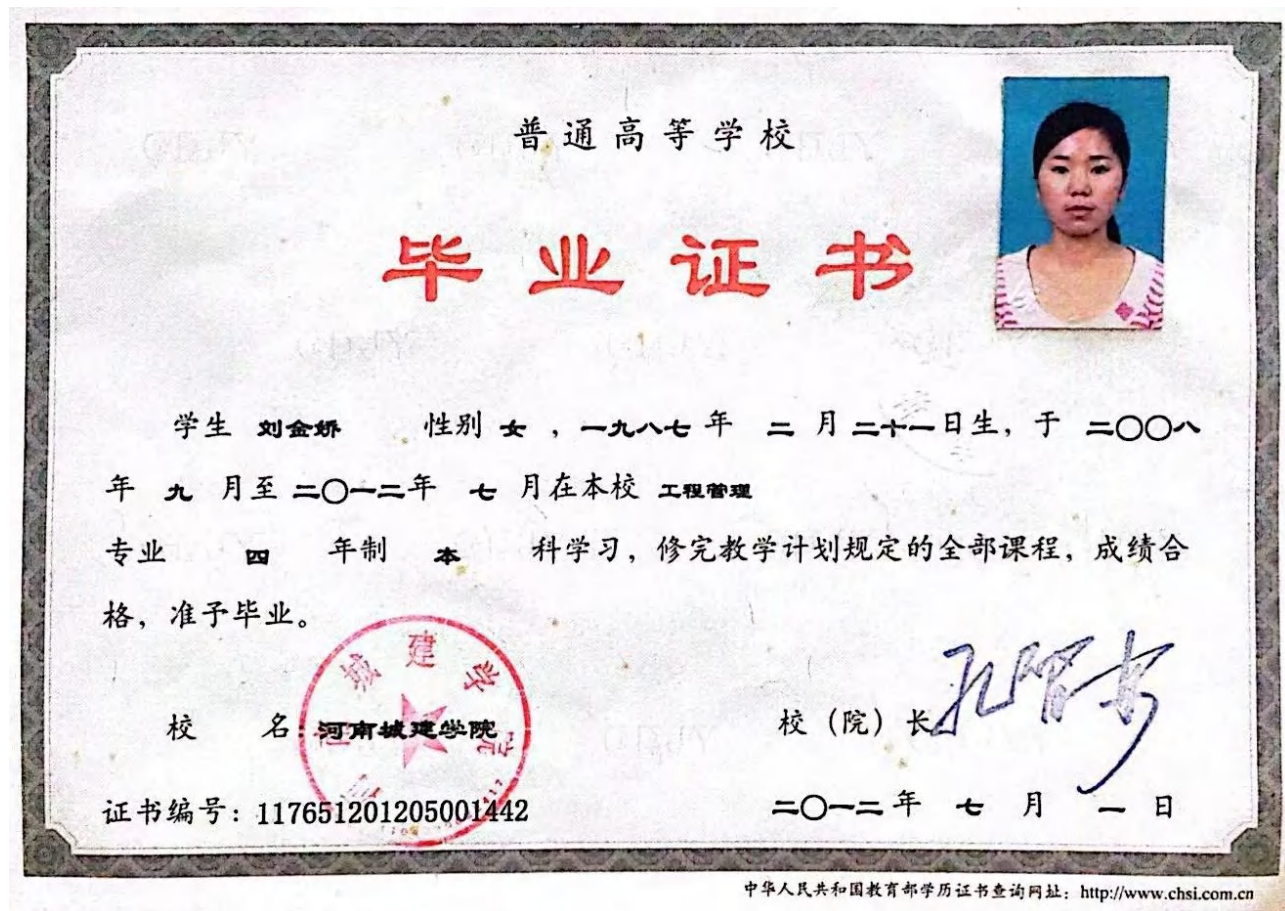 普通高等学校
毕业证书
学生 刘金娇 性别 女 ，一九八七 年 二 月 二十一 日生，于 二〇〇八
年 九 月至 二〇一二年 七 月在本校 工程管理
专业 四 年制 本 科学习，修完教学计划规定的全部课程，成绩合
格，准予毕业。
城建学院
校 名：河南城建学院
校（院）长
证书编号：117651201205001442
二〇一二年 七 月 一 日
中华人民共和国教育部学历证书查询网址：http://www.chsi.com.cn